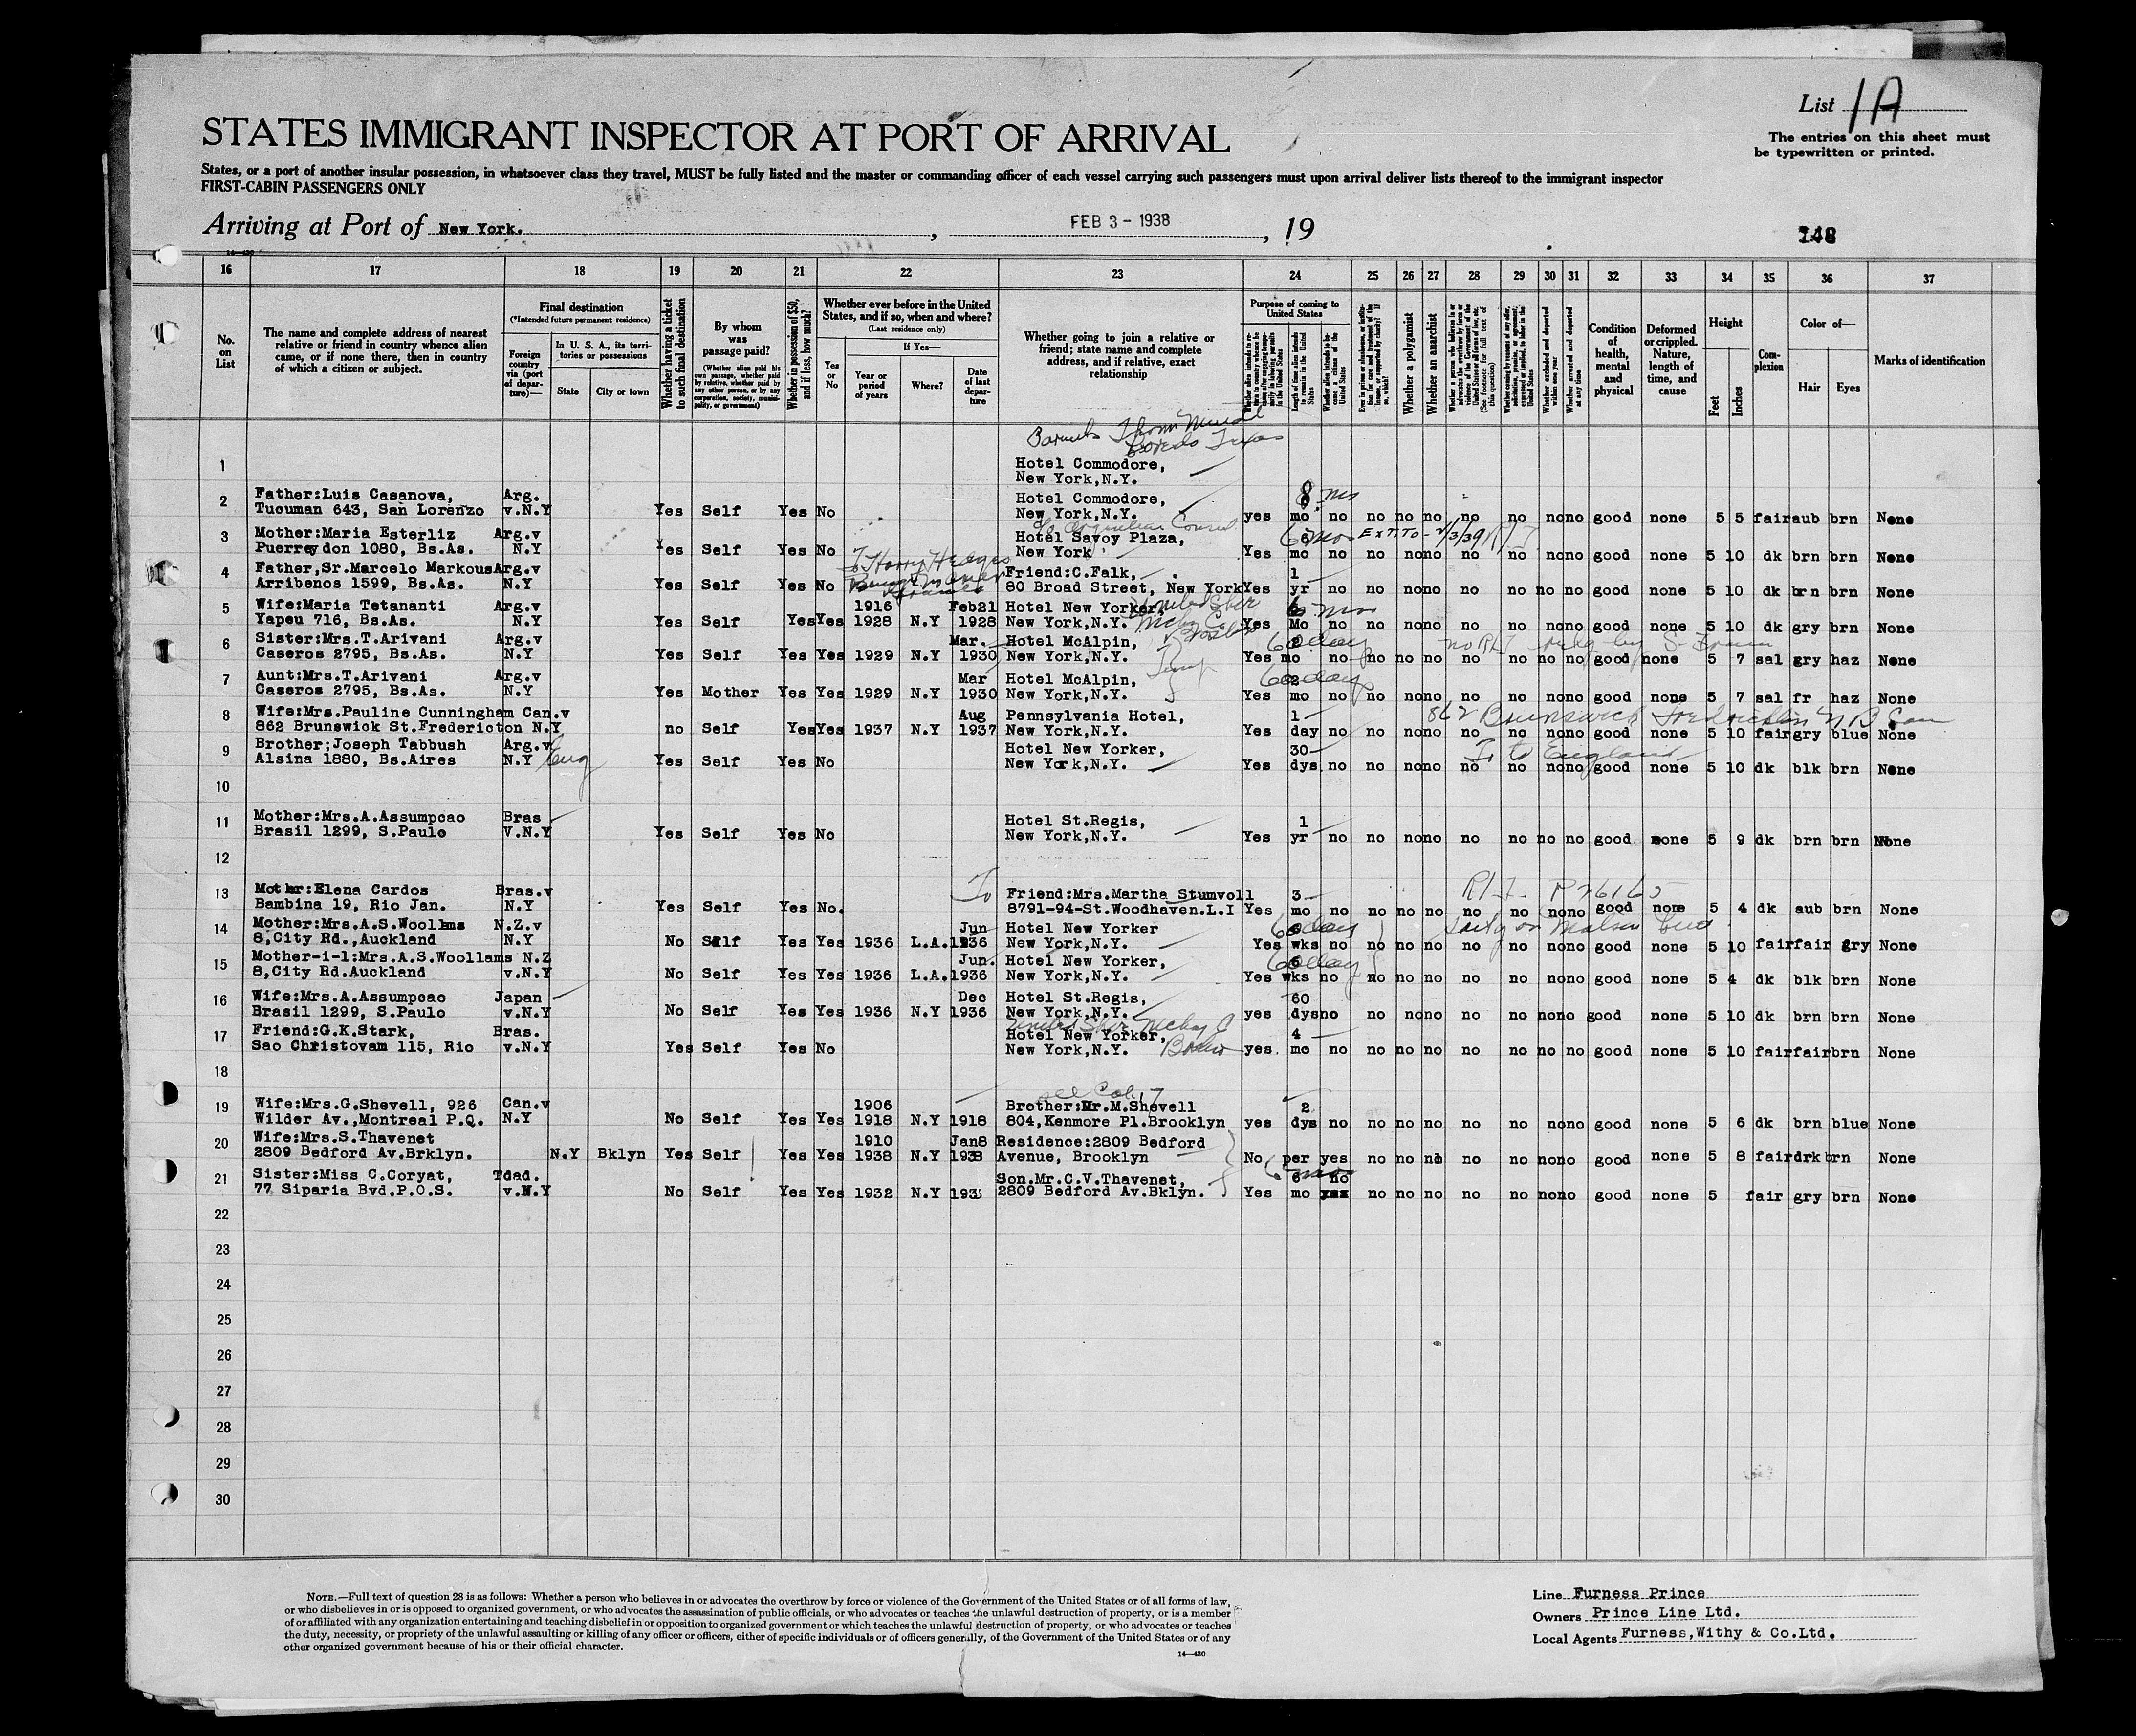 List 1A
The entries on this sheet must
be typewritten or printed.
STATES IMMIGRANT INSPECTOR AT PORT OF ARRIVAL
States, or a port of another insular possession, in whatsoever class they travel, MUST be fully listed and the master or commanding officer of each vessel carrying such passengers must upon arrival deliver lists thereof to the immigrant inspector
FIRST-CABIN PASSENGERS ONLY
Arriving at Port of New York. , FEB 3 - 1938 , 19
148
14-430
16 17 18 19 20 21 22 23 24 25 26 27 28 29 30 31 32 33 34 35 36 37
No. on List
The name and complete address of nearest relative or friend in country whence alien came, or if none there, then in country of which a citizen or subject.
Final destination
(*Intended future permanent residence)
Foreign country via (port of departure)—
In U. S. A., its territories or possessions
State City or town
Whether having a ticket to such final destination
By whom was passage paid?
(Whether alien paid his own passage, whether paid by relative, whether paid by any other person, or by any corporation, society, municipality, or government)
Whether in possession of $50, and if less, how much?
Whether ever before in the United States, and if so, when and where?
(Last residence only)
Yes or No
If Yes—
Year or period of years
Where?
Date of last departure
Whether going to join a relative or friend; state name and complete address, and if relative, exact relationship
Purpose of coming to United States
Whether a polygamist
Whether an anarchist
Condition of health, mental and physical
Deformed or crippled. Nature, length of time, and cause
Height
Feet Inches
Complexion
Color of—
Hair Eyes
Marks of identification
Texas
1 Hotel Commodore,
New York,N.Y.
2 Father:Luis Casanova, Arg. Hotel Commodore, 8 mos
Tucuman 643, San Lorenzo v.N.Y Yes Self Yes No New York,N.Y. yes mo no no no no no no no no good none 5 5 fair aub brn None
3 Mother:Maria Esterliz Arg.v Hotel Savoy Plaza, 6 mos Ext. To - 2/3/39
Puerreydon 1080, Bs.As. N.Y Yes Self Yes No New York Yes mo no no no no no no no no good none 5 10 dk brn brn None
To Harry Hedges
4 Father,Sr.Marcelo Markous Arg.v Friend:C.Falk, 1
Arribenos 1599, Bs.As. N.Y Yes Self Yes No 80 Broad Street, New York Yes yr no no no no no no no no good none 5 10 dk brn brn None
5 Wife:Maria Tetananti Arg.v 1916 Feb21 Hotel New Yorker, 6 mos
Yapeu 716, Bs.As. N.Y Yes Self Yes Yes 1928 N.Y 1928 New York,N.Y. Yes Mo no no no no no no no no good none 5 10 dk gry brn None
6 Sister:Mrs.T.Arivani Arg.v Mar. Hotel McAlpin, 60 days
Caseros 2795, Bs.As. N.Y Yes Self Yes Yes 1929 N.Y 1930 New York,N.Y. Yes mo no no no no no no no no good none 5 7 sal gry haz None
7 Aunt:Mrs.T.Arivani Arg.v Mar Hotel McAlpin, 60 days
Caseros 2795, Bs.As. N.Y Yes Mother Yes Yes 1929 N.Y 1930 New York,N.Y. Yes mo no no no no no no no no good none 5 7 sal fr haz None
8 Wife:Mrs.Pauline Cunningham Can.v Aug Pennsylvania Hotel, 1 862 Brunswick Fredericton N B Can
862 Brunswick St.Fredericton N.Y no Self Yes Yes 1937 N.Y 1937 New York,N.Y. Yes day no no no no no no no no good none 5 10 fair gry blue None
9 Brother;Joseph Tabbush Arg.v Eng Hotel New Yorker, 30 to England
Alsina 1880, Bs.Aires N.Y Yes Self Yes No New York,N.Y. Yes dys. no no no no no no no no good none 5 10 dk blk brn None
10
11 Mother:Mrs.A.Assumpcao Bras Hotel St.Regis, 1
Brasil 1299, S.Paulo V.N.Y Yes Self Yes No New York,N.Y. Yes yr no no no no no no no no good none 5 9 dk brn brn None
12
13 Mother:Elena Cardos Bras.v Friend:Mrs.Martha Stumvoll 3
Bambina 19, Rio Jan. N.Y Yes Self Yes No. 8791-94-St.Woodhaven.L.I Yes mo no no no no no no no no good none 5 4 dk aub brn None
14 Mother:Mrs.A.S.Woollams N.Z.v Jun Hotel New Yorker 60 days
8,City Rd.,Auckland N.Y No Self Yes Yes 1936 L.A. 1936 New York,N.Y. Yes wks no no no no no no no no good none 5 10 fair fair gry None
15 Mother-i-l:Mrs.A.S.Woollams N.Z Jun. Hotel New Yorker, 60 days
8,City Rd.Auckland v.N.Y No Self Yes Yes 1936 L.A. 1936 New York,N.Y. Yes wks no no no no no no no no good none 5 4 dk blk brn None
16 Wife:Mrs.A.Assumpcao Japan Dec Hotel St.Regis, 60
Brasil 1299, S.Paulo v.N.Y No Self Yes Yes 1936 N.Y 1936 New York,N.Y. yes dys no no no no no no no no good none 5 10 dk brn brn None
17 Friend:G.K.Stark, Bras. Hotel New Yorker, 4
Sao Christovam 115, Rio v.N.Y Yes Self Yes No New York,N.Y. yes. mo no no no no no no no no good none 5 10 fair fair brn None
18
19 Wife:Mrs.G.Shevell, 926 Can.v 1906 Brother:Mr.M.Shevell 2
Wilder Av.,Montreal P.Q. N.Y No Self Yes Yes 1918 N.Y 1918 804,Kenmore Pl.Brooklyn yes dys no no no no no no no no good none 5 6 dk brn blue None
20 Wife:Mrs.S.Thavenet 1910 Jan8 Residence:2809 Bedford
2809 Bedford Av.Brklyn. N.Y Bklyn Yes Self Yes Yes 1938 N.Y 1938 Avenue, Brooklyn No per yes no no no no no no no good none 5 8 fair drk brn None
21 Sister:Miss C.Coryat, Tdad. Son.Mr.C.V.Thavenet, 6 mos no
77 Siparia Bvd.P.O.S. v.N.Y No Self Yes Yes 1932 N.Y 2809 Bedford Av.Bklyn. Yes mo no no no no no no no good none 5 fair gry brn None
22
23
24
25
26
27
28
29
30
NOTE.—Full text of question 28 is as follows: Whether a person who believes in or advocates the overthrow by force or violence of the Government of the United States or of all forms of law,
or who disbelieves in or is opposed to organized government, or who advocates the assassination of public officials, or who advocates or teaches the unlawful destruction of property, or is a member
of or affiliated with any organization entertaining and teaching disbelief in or opposition to organized government or which teaches the unlawful destruction of property, or who advocates or teaches
the duty, necessity, or propriety of the unlawful assaulting or killing of any officer or officers, either of specific individuals or of officers generally, of the Government of the United States or of any
other organized government because of his or their official character.
14-430
Line Furness Prince
Owners Prince Line Ltd.
Local Agents Furness,Withy & Co.Ltd.